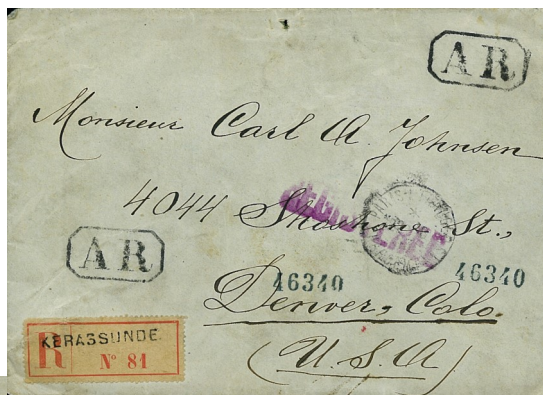 A R
Monsieur Carl A. Johnsen
4044 Shoshone St.,
A R
46340
46340
Denver, Colo.
(U. S. A)
KERASSUNDE
R
N° 81